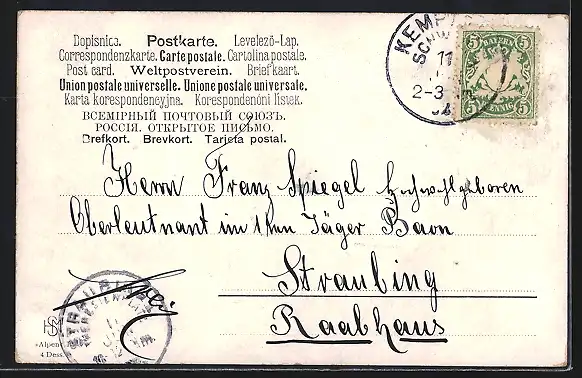 Dopisnica. Postkarte. Levelező-Lap.
Correspondenzkarte. Carte postale. Cartolina postale.
Post card. Weltpostverein. Briefkaart.
Union postale universelle. Unione postale universale.
Karta korespondencyjna. Korespondenóni listek.
ВСЕМІРНЫЙ ПОЧТОВЫЙ СОЮЗЪ.
РОССІЯ. ОТКРЫТОЕ ПИСЬМО.
Brefkort. Brevkort. Tarjeta postal.
KEMPT
SCHW
11
2-3
5 BAYERN 5
5 PFENNIG 5
Herrn Franz Spiegel Hochwohlgeboren
Oberleutnant im 1ten Jäger Baon
Straubing
Raabhaus
STRAUBING
HSM
"Alpen
4 Dess.